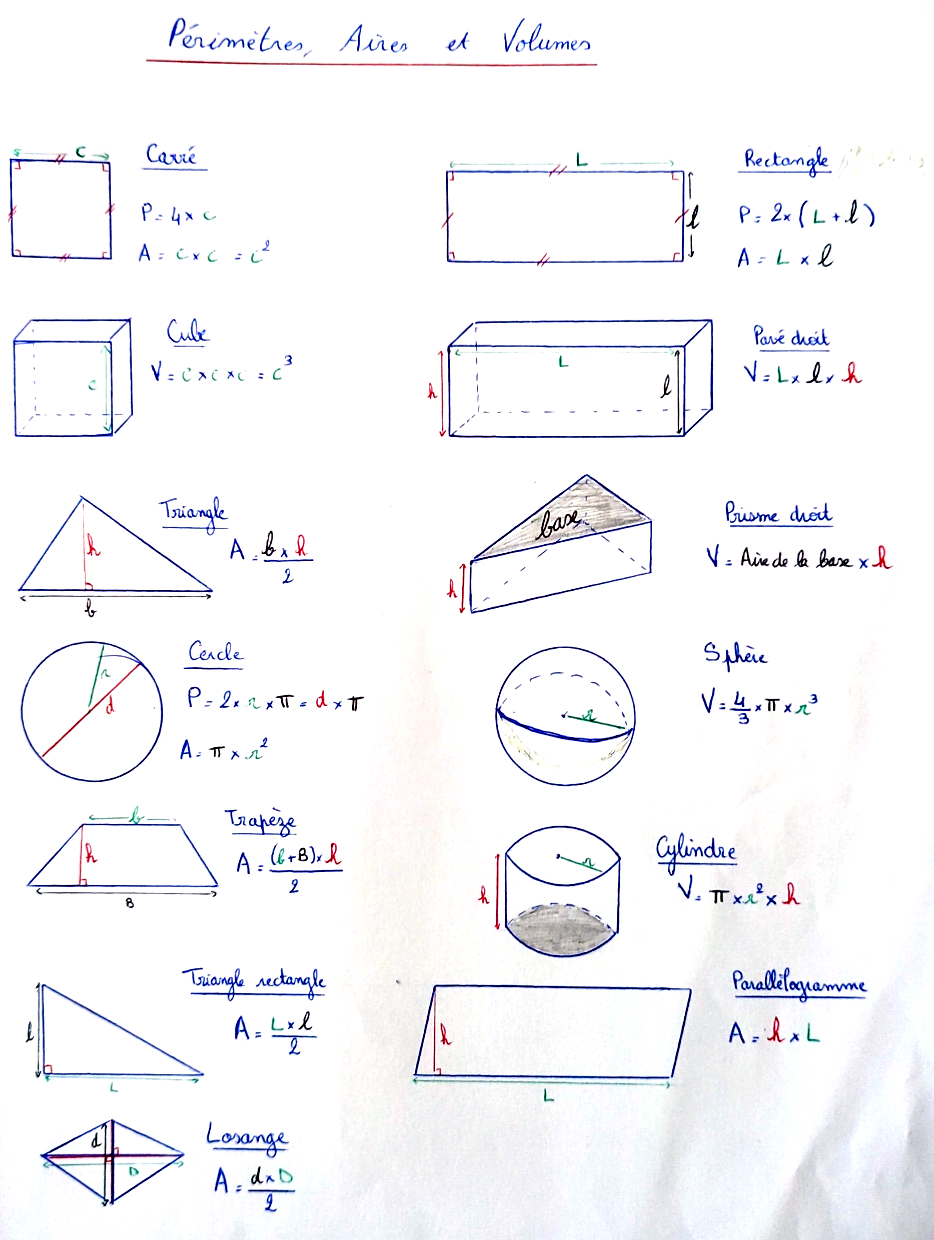 Périmètres, Aires et Volumes
c
Carré
P = 4 × c
A = c × c = c²
L
l
Rectangle
P = 2 × ( L + l )
A = L × l
c
Cube
V = c × c × c = c³
L
h
l
Pavé droit
V = L × l × h
h
b
Triangle
A = b × h / 2
base
h
Prisme droit
V = Aire de la base × h
r
d
Cercle
P = 2 × r × π = d × π
A = π × r²
r
Sphère
V = 4/3 × π × r³
b
h
B
Trapèze
A = (b + B) × h / 2
r
h
Cylindre
V = π × r² × h
l
L
Triangle rectangle
A = L × l / 2
h
L
Parallélogramme
A = h × L
d
D
Losange
A = d × D / 2